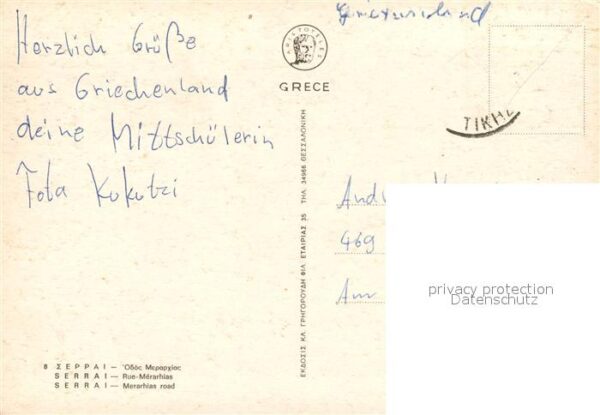 Herzlich Grüße
aus Griechenland
deine Mittschülerin
Fota Kukutzi
Griechenland
ΑΡΙΣΤΟΤΕΛΗΣ
GRECE
ΤΙΚΗΣ
ΕΚΔΟΣΙΣ ΚΛ. ΓΡΗΓΟΡΟΥΔΗ ΦΙΛ. ΕΤΑΙΡΙΑΣ 35 ΤΗΛ. 34966 ΘΕΣΣΑΛΟΝΙΚΗ
469
Am
privacy protection
Datenschutz
8 ΣΕΡΡΑΙ — Ὁδὸς Μεραρχίας
SERRAI — Rue-Mérarhias
SERRAI — Merarhias road